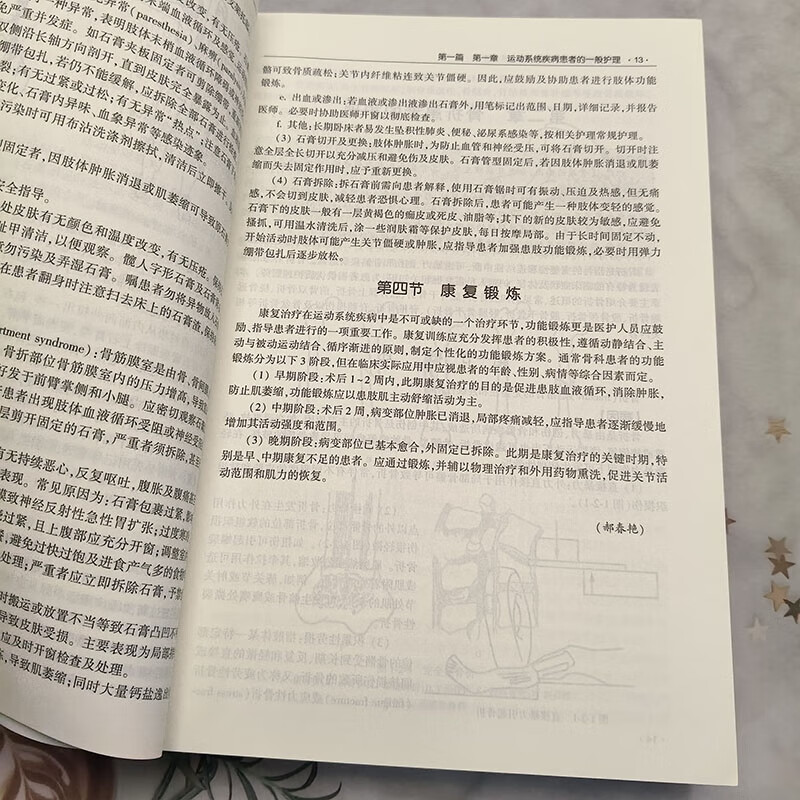 改变,有无压疮,
末端血液循环及感觉,
免严重并发症。
一种异常,表明肢体末梢血液循环障碍或
(paresthesia)、麻痹
。如石膏夹板固定者可剪除绷带,重新
双侧沿长轴方向剖开,直到皮肤完全暴露为止
绷带包扎,若仍不能缓解,应拆除全部石膏进行检查
裂;有无过紧或过松;有无异常“热点”;注意石膏下
变化、石膏内异味、血象异常等感染迹象。
污染时可用布沾洗涤剂擦拭,清洁后立即擦干。
固定者,因肢体肿胀消退或肌萎缩可导致原石膏
安全指导。
处皮肤有无颜色和温度改变,有无压疮,
趾甲清洁,以便观察。髋人字形石膏及石膏
意勿污染及弄湿石膏。嘱患者勿将异物放入
在患者翻身时注意扫去床上的石膏渣,保持
rtment syndrome):骨筋膜室是由骨、骨间膜
骨折部位骨筋膜室内的压力增高,导致
好发于前臂掌侧和小腿。应密切观察石膏
患者出现肢体血液循环受阻或神经受
层剪开固定的石膏,严重者须拆除,甚至
有无持续恶心,反复呕吐,腹胀及腹痛
表现。常见原因为:石膏包裹过紧,影
膜致神经反射性急性胃扩张;过度寒
过紧,且上腹部应充分开窗;调整室
避免过快过饱及进食产气多的食物
处理;严重者应立即拆除石膏,予禁
时搬运或放置不当等致石膏凸凹不
导致皮肤受损。主要表现为局部持
应及时开窗检查及处理。
,导致肌萎缩;同时大量钙盐逸出
第一篇 第一章 运动系统疾病患者的一般护理 ·13·
骼可致骨质疏松;关节内纤维粘连致关节僵硬。因此,应鼓励及协助患者进行肢体功能
锻炼。
e. 出血或渗出:若血液或渗出液渗出石膏外,用笔标记出范围、日期,详细记录,并报告
医师。必要时协助医师开窗以彻底检查。
f. 其他:长期卧床者易发生坠积性肺炎、便秘、泌尿系感染等,按相关护理常规护理。
(3) 石膏切开及更换:肢体肿胀时,为防止血管和神经受压,可将石膏切开。切开时注
意全层全长切开以充分减压和避免伤及皮肤。石膏管型固定后,若因肢体肿胀消退或肌萎
缩而失去固定作用时,应予重新更换。
(4) 石膏拆除:拆石膏前需向患者解释,使用石膏锯时可有振动、压迫及热感,但无痛
感,不会切到皮肤,减轻患者恐惧心理。石膏拆除后,患者可能产生一种肢体变轻的感觉。
石膏下的皮肤一般有一层黄褐色的痂皮或死皮、油脂等;其下的新的皮肤较为敏感,应避免
搔抓,可用温水清洗后,涂一些润肤霜等保护皮肤,每日按摩局部。由于长时间固定不动,
开始活动时肢体可能产生关节僵硬或肿胀,应指导患者加强患肢功能锻炼,必要时用弹力
绷带包扎后逐步放松。
第四节 康复锻炼
康复治疗在运动系统疾病中是不可或缺的一个治疗环节,功能锻炼更是医护人员应鼓
励、指导患者进行的一项重要工作。康复训练应充分发挥患者的积极性,遵循动静结合、主
动与被动运动结合、循序渐进的原则,制定个性化的功能锻炼方案。通常骨科患者的功能
锻炼分为以下3阶段,但在临床实际应用中应视患者的年龄、性别、病情等综合因素而定。
(1) 早期阶段:术后1~2周内,此期康复治疗的目的是促进患肢血液循环,消除肿胀,
防止肌萎缩,功能锻炼应以患肢肌主动舒缩活动为主。
(2) 中期阶段:术后2周,病变部位肿胀已消退,局部疼痛减轻,应指导患者逐渐缓慢地
增加其活动强度和范围。
(3) 晚期阶段:病变部位已基本愈合,外固定已拆除。此期是康复的关键时期,特
别是早、中期康复不足的患者。应通过锻炼,并辅以物理治疗和外用药物熏洗,促进关节活
动范围和肌力的恢复。
(郝春艳)